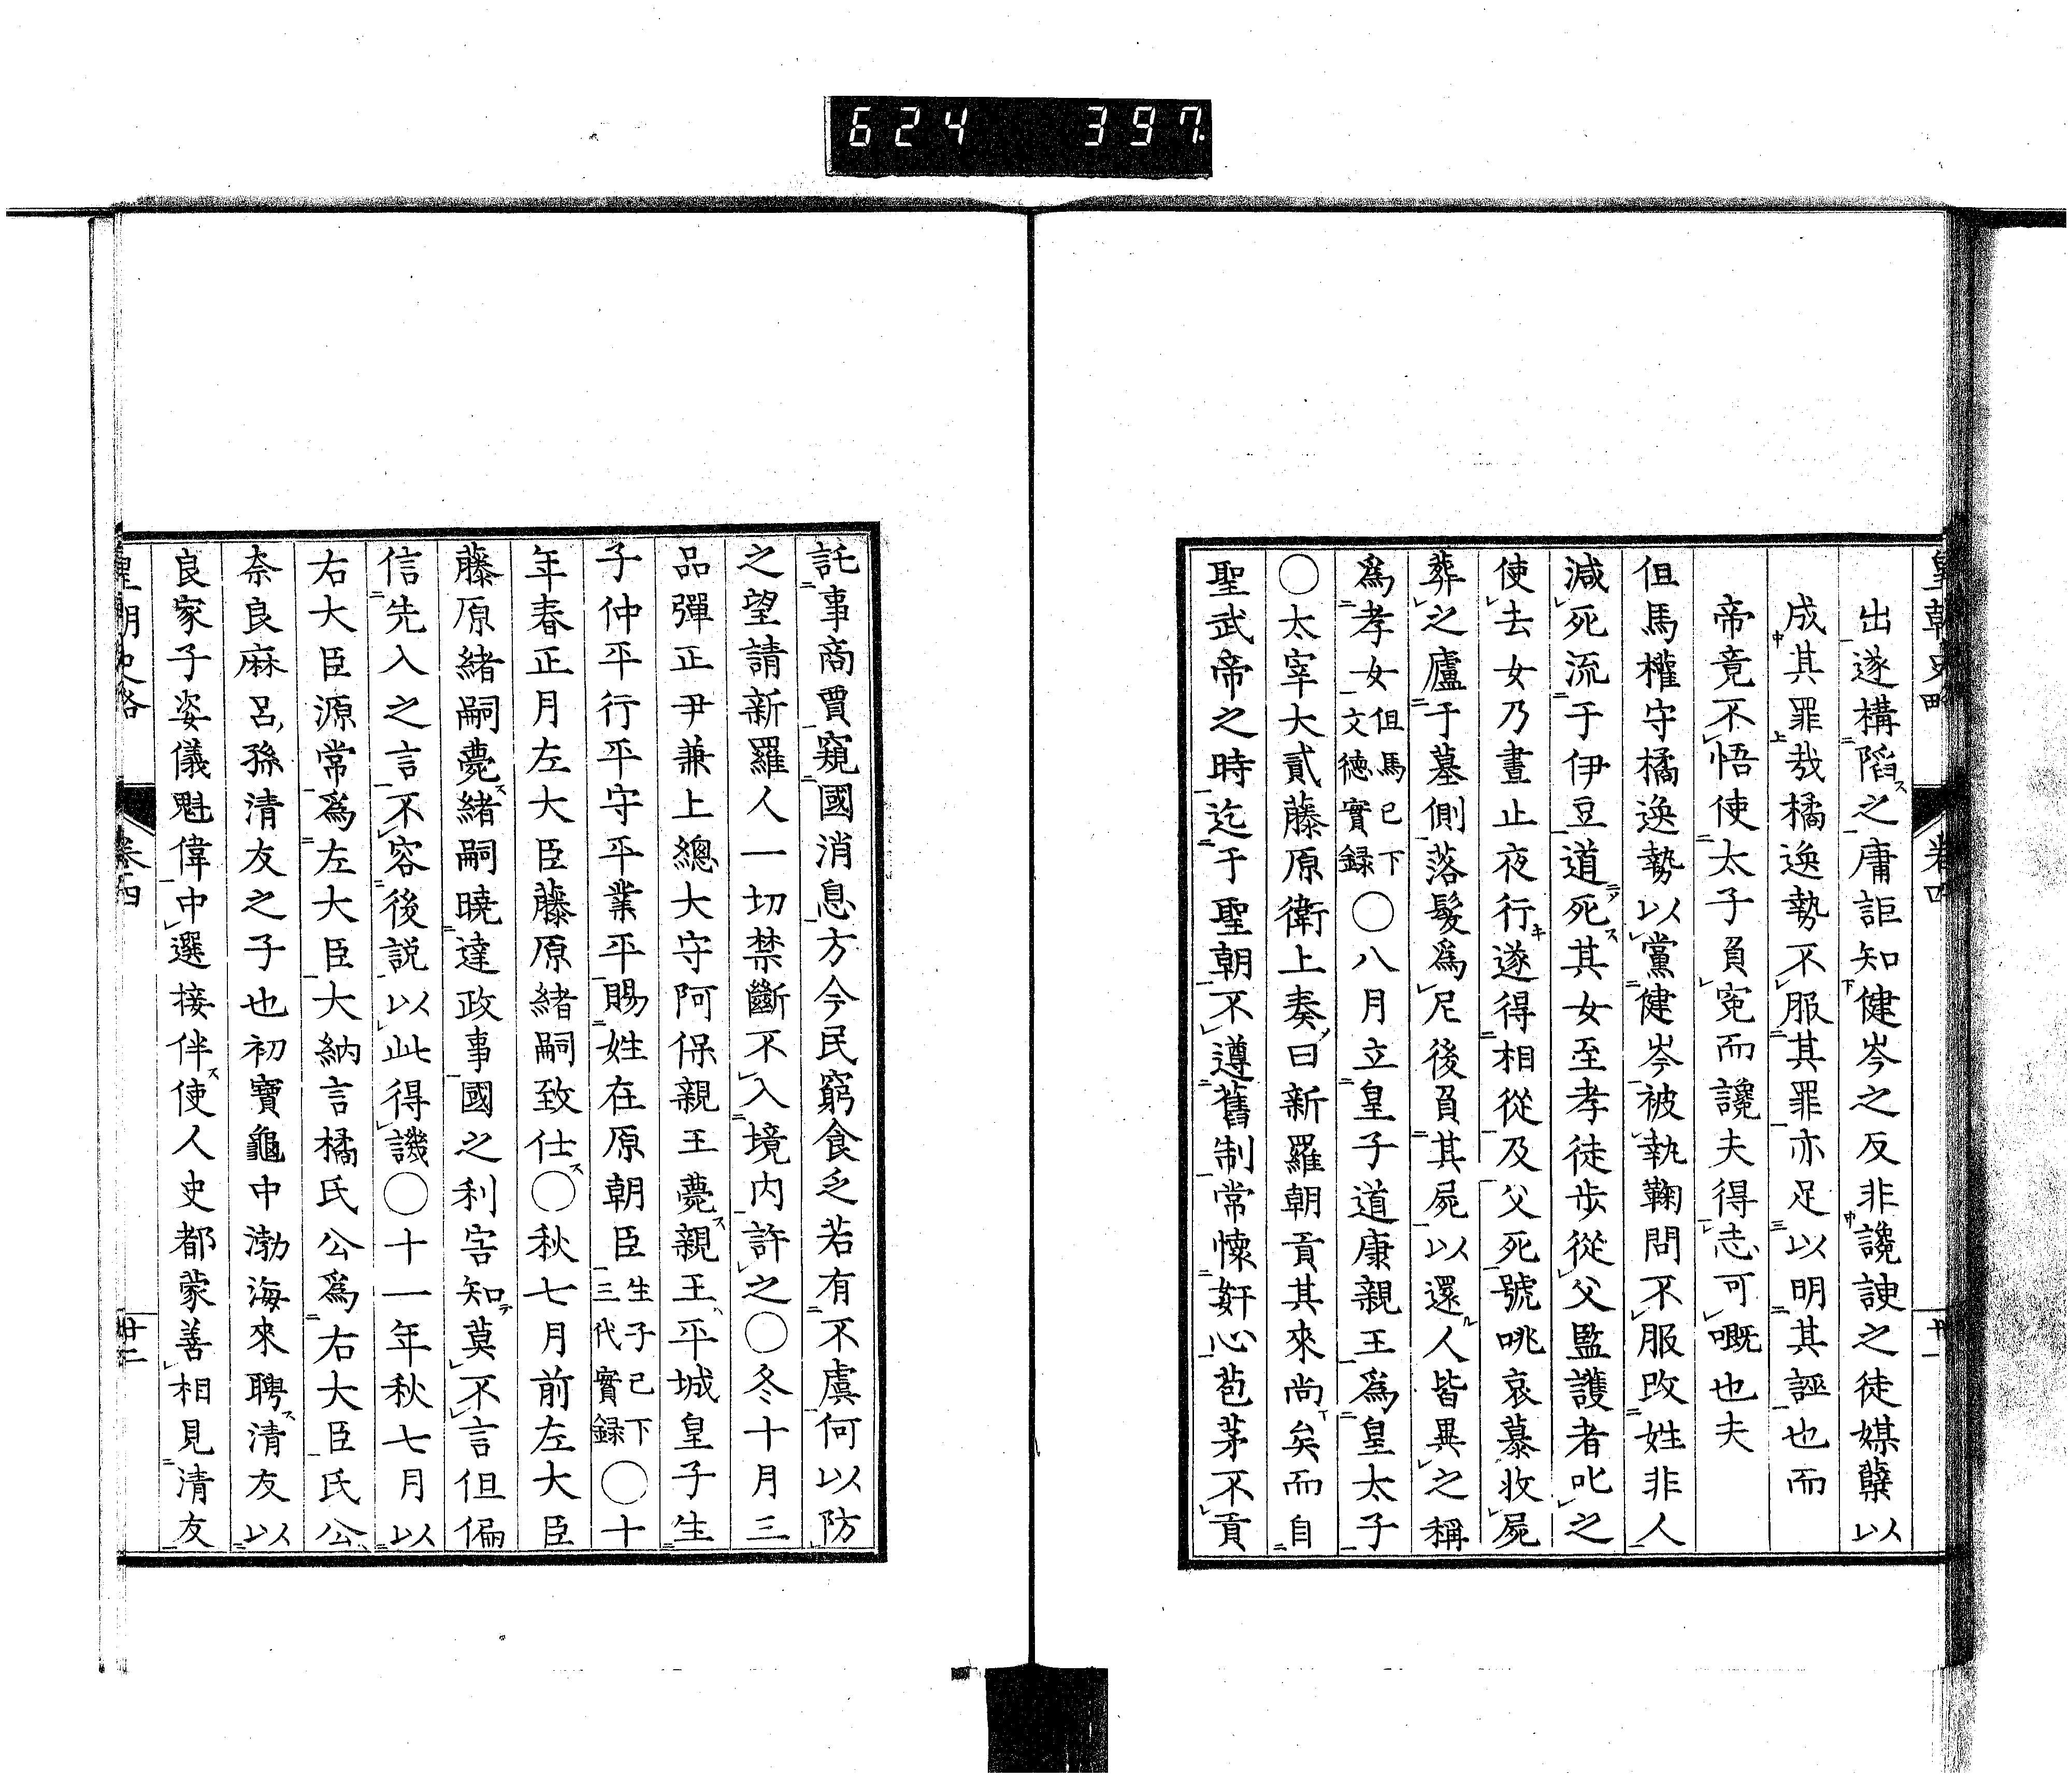 624 397
皇朝史略 卷四 廿一
出遂構陷之庸詎知健岑之反非讒諛之徒媒糵以
成其罪哉橘逸勢不服其罪亦足以明其誣也而
帝竟不悟使太子負寃而讒夫得志可嘅也夫
但馬權守橘逸勢以黨健岑被執鞠問不服改姓非人
減死流于伊豆道死其女至孝徒步從父監護者叱之
使去女乃晝止夜行遂得相從及父死號咷哀慕收屍
葬之廬于墓側落髮爲尼後負其屍以還人皆異之稱
爲孝女但馬已下文德實録〇八月立皇子道康親王爲皇太子
〇太宰大貳藤原衛上奏曰新羅朝貢其來尚矣而自
聖武帝之時迄于聖朝不遵舊制常懷姧心苞茅不貢
託事商賈窺國消息方今民窮食乏若有不虞何以防
之望請新羅人一切禁斷不入境内許之〇冬十月三
品彈正尹兼上總大守阿保親王薨親王平城皇子生
子仲平行平守平業平賜姓在原朝臣生子已下三代實録〇十
年春正月左大臣藤原緒嗣致仕〇秋七月前左大臣
藤原緒嗣薨緒嗣曉達政事國之利害知莫不言但偏
信先入之言不容後説以此得譏〇十一年秋七月以
右大臣源常爲左大臣大納言橘氏公爲右大臣氏公
奈良麻呂孫清友之子也初寶龜中渤海來聘清友以
良家子姿儀魁偉中選接伴使人史都蒙善相見清友
皇朝史略 卷四 廿二